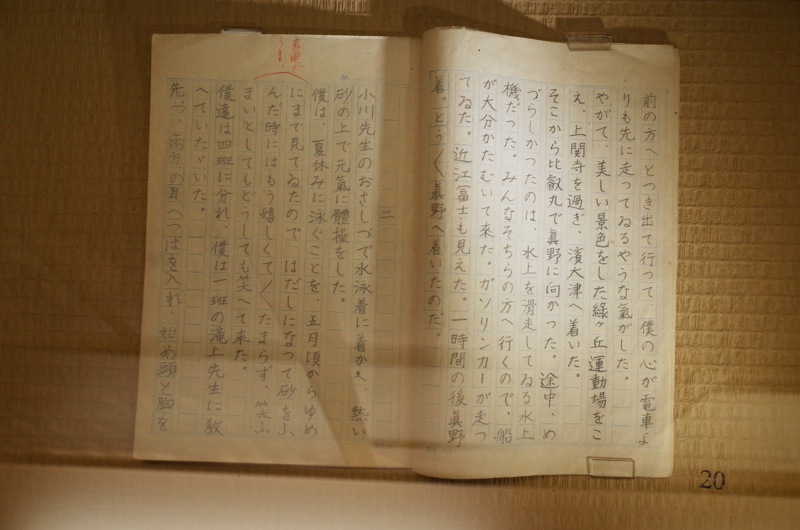 前の方へ〱とつき出て行って、僕の心が電車よ
りも先に走ってゐるやうな氣がした。
やがて、美しい景色をした綠ヶ丘運動場をこ
え、上関寺を過ぎ、濱大津へ着いた。
そこから比叡丸で眞野に向かった。途中、め
づらしかつたのは、水上を滑走してゐる水上
機だった。みんなそちらの方へ行くので、船
が大分かたむいて来た。ガソリンカーが走つ
てゐた。近江冨士も見えた。一時間の後眞野
着、とう〱眞野へ着いたのだ。
二
小川先生のおさしづで水泳着に着かへ、熱い
砂の上で元氣に體操をした。
僕は、夏休みに泳ぐことを、五月頃からゆめ
にまで見てゐたので はだしになつて砂をふ
んだ時にはもう嬉しくて〱たまらず、笑ふ
まいとしてもどうしても笑へて来た。
僕達は四班に分れ、僕は一班の滝上先生に教
へていたゞいた。
先づ、両方の耳へつばを入れ、始め頭と胸を
20